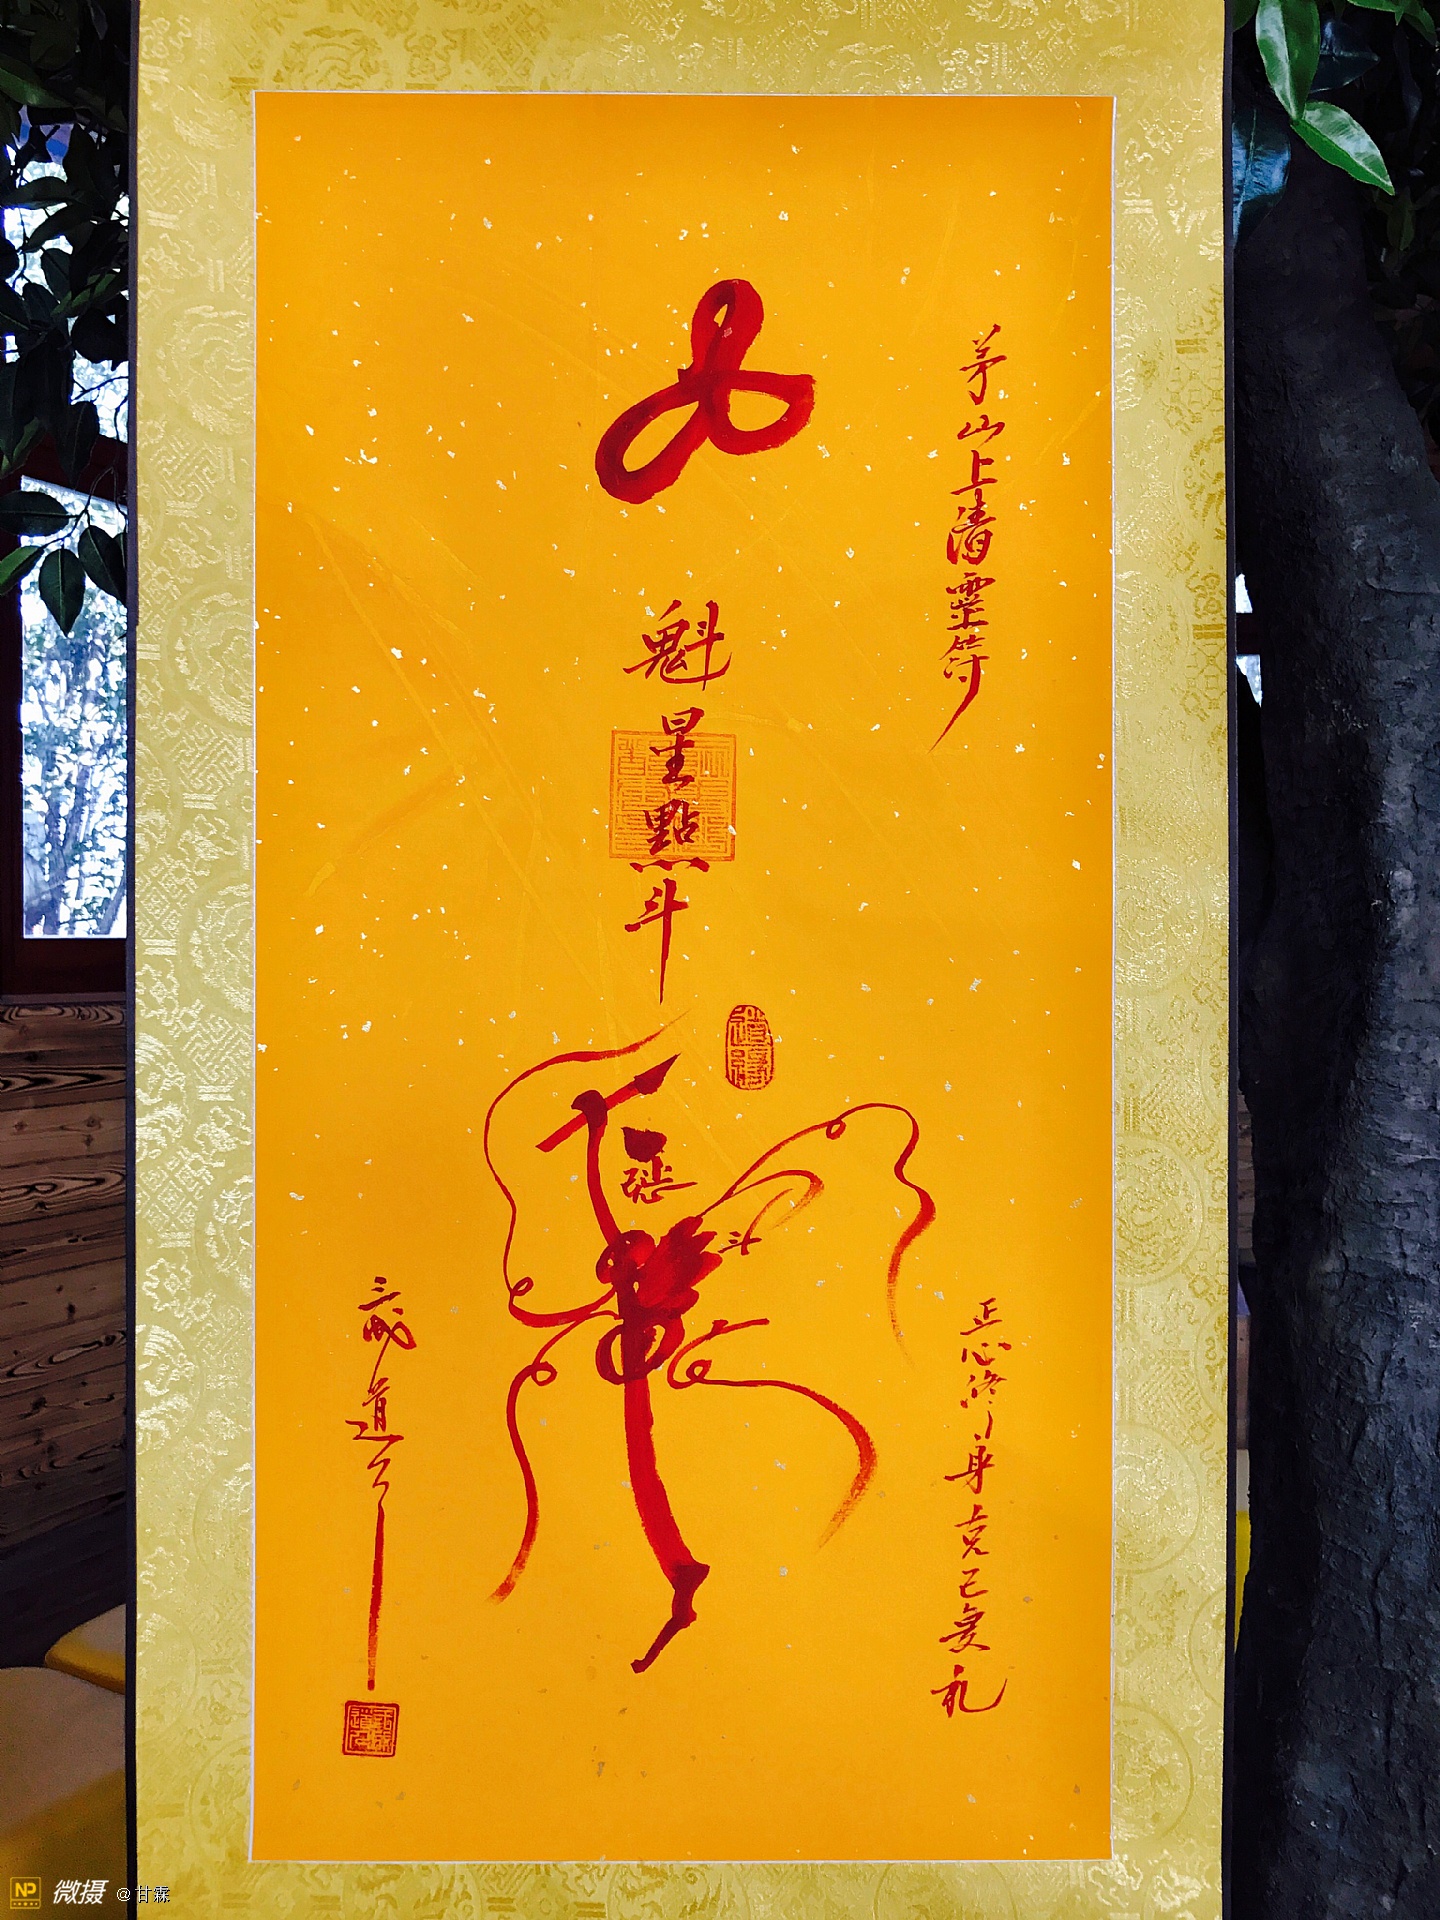 茅山上清靈符
魁星點斗
斗
正心修身克己复礼
三戒道人
NP 微摄 @甘霖